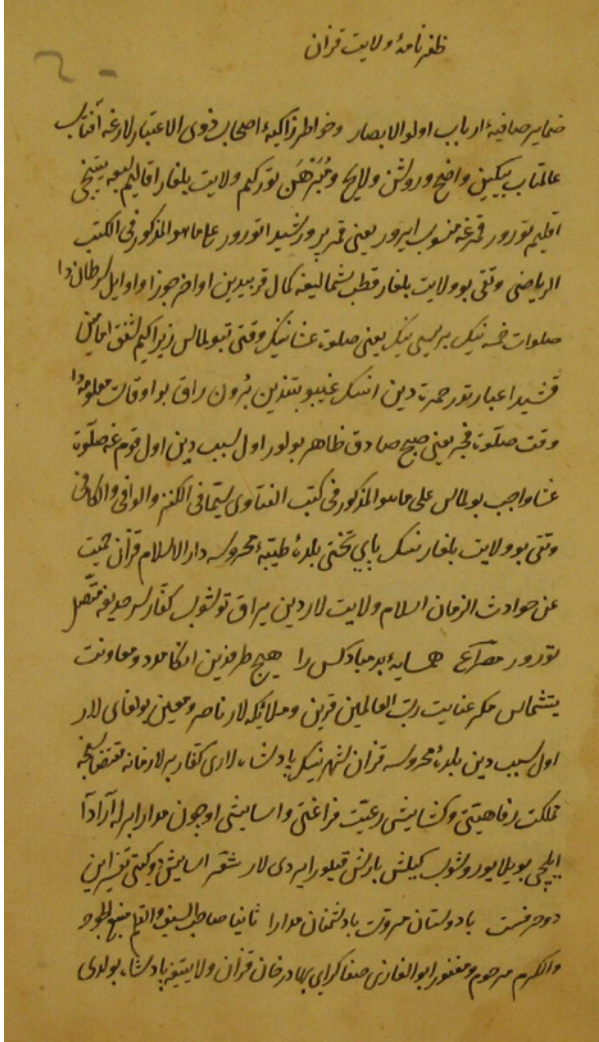 ظفرنامهٔ ولایت قزان
ضمایر صافیهٔ ارباب اولو الابصار و خواطر زاکیهٔ اصحاب ذوی الاعتبار لارغه آفتاب
عالمتاب ییکین واضح و روشن ولایح و مبرهن تورکیم ولایت بلغار اقالیم سبعه بیتینچی
اقلیم تورور قمرغه منسوب ایرور یعنی قمر پرورشیدا تورور علی ما هو المذکور فی الکتب
الریاضی و تقی بو ولایت بلغار قطب شمالیغه کمال قربیدین اواخر جوزا و اوایل سرطاندا
صلوات خمسه نینک بریسی نینک یعنی صلوة عشا نینک وقتی تبولماس زیراکیم شفق امامین
قشیدا عبارتدور حمرة دین انینک غیبوبتیندین بورون راق بو اوقات معلومهدا
وقت صلوة فجر یعنی صبح صادق ظاهر بولور اول سبب دین اول قوم غه صلوة
عشا واجب بولماس علی ما هو المذکور فی کتب الفتاوی سیما فی الکنز والوافی والکافی
و تقی بو ولایت بلغار نینک پای تختی بلدهٔ طیبهٔ محروسه دار الاسلام قزان حمیت
عن حوادث الزمان اسلام ولایت لاردین ییراق توشوب کفار سرحدیغه متصل
تورور مصراع همسایهٔ بد مباد کس را هیچ طرفدین انکا مدد و معاونت
یتشماس مکر عنایت رب العالمین قرین و ملایکه لار ناصر و معین بولغای لار
اول سبب دین بلدهٔ محروسه قزان شهر نینک پادشاه لاری کفار بیرله زمانه مقتضاسیچه
مملکت رفاهیتی و کشایشی رعیت فراغتی و اسایشی اوچون مدارا بیرله آرادا
ایلچی یوریلا یوروشوب کیلیش باریش قیلور ایردی لار شعر اسایش دو کیتی تفسیر این
دو حرفست با دوستان مروت با دشمنان مدارا ثانیا صاحب السیف والقلم منبع الجود
والکرم مرحوم و مغفور ابو الغازی صفا کرای بهادر خان قزان ولایتیغه پادشاه بولدی